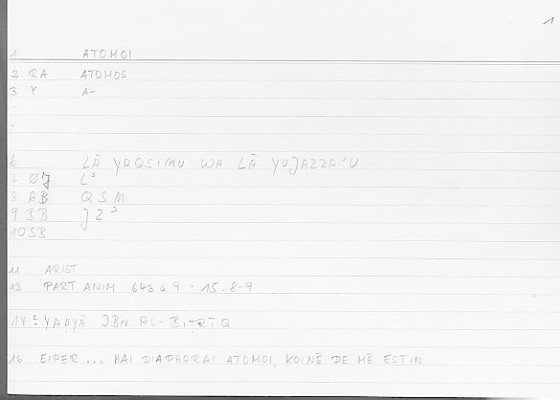 1
1 ATOMOI
2 RA ATOMOS
3 Y A-
6 LĀ YAQSIMU WA LĀ YUJAZZAʾU
7 ØJ Lʾ
8 AB QSM
9 BB JZʾ
10 SB
11 ARIST
12 PART ANIM 643 a 9 - 15.8-9
14 YAḤYĀ IBN AL-BIṬRĪQ
16 EIPER ... HAI DIAPHORAI ATOMOI, KOINĒ DE MĒ ESTIN